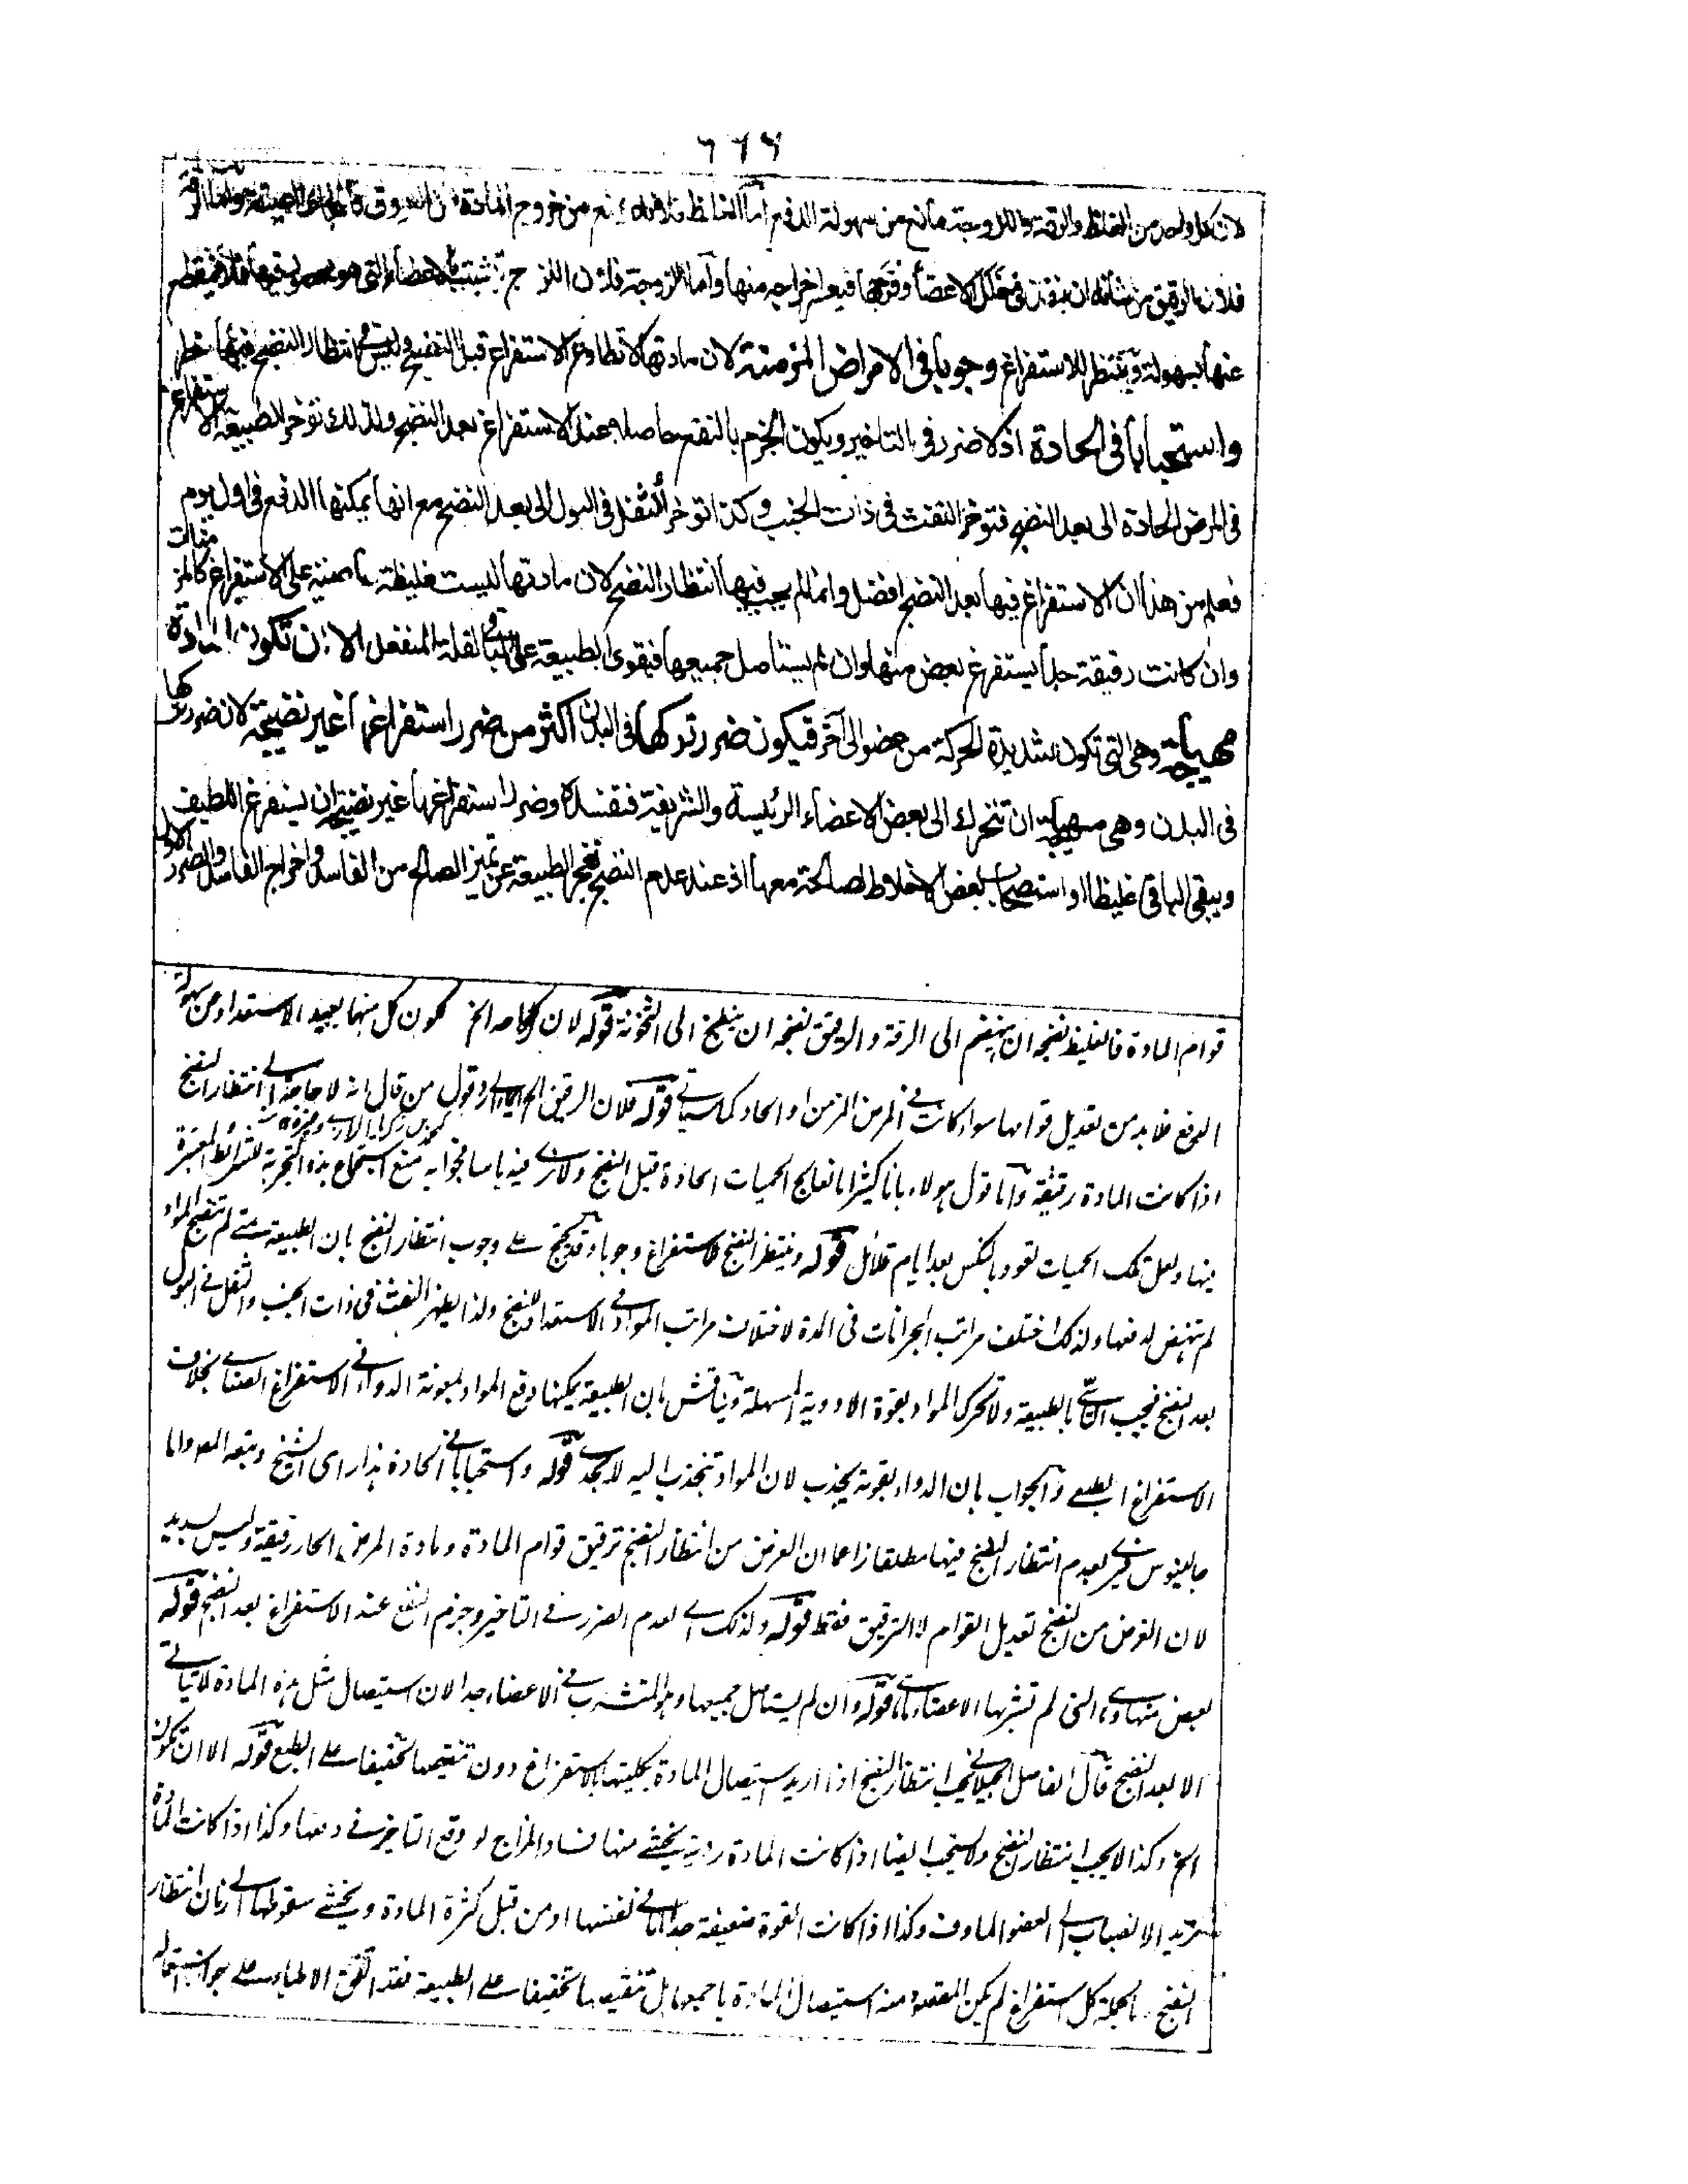 ٦٦٦
لان كل واحد من الغلظ والرقة واللزوجة مانع من سهولة الدفع اما الغلظ فلانه يمنع من خروج المادة من العروق
فلان الرقيق من شأنه ان ينفذ في خلل الاعضأ وفرجها فيعسر اخراجه منها وأما اللزوجة فلان اللزج يتشبث بالاعضاء التي هو
عنها بسهولة وينتظر للاستفراغ وجوبا في الامراض المزمنة لان مادتها لا تطاوع الاستفراغ قبل النضج وليس في انتظار النضج فيها خطر
واستحبابا في الحادة اذ لا ضرر في التاخير ويكون الجزم بالنفع حاصلا عند الاستفراغ بعد النضج ولذلك توخر الطبيعة الاستفراغ
في المرض الحادة الى بعد النضج فتوخر النفث في ذات الجنب وكذا توخر الثفل في البول الى بعد النضج مع انها يمكنها الدفع في اول يوم
فعلم من هذا ان الاستفراغ فيها بعد النضج افضل وانما لم يجب فيها انتظار النضج لان مادتها ليست غليظة عاصية على الاستفراغ كالمزمنات
وان كانت رقيقة جدا يستفرغ بعض منها وان لم يستاصل جميعها فيقوى الطبيعة على الباقي لقلة المنفعل الا ان تكون المادة
مهياجة وهي التي تكون شديدة الحركة من عضو الى آخر فيكون ضرر تركها في البدن اكثر من ضرر استفراغها غير نضيجة لان ضرر تركها
في البدن وهي مهياجة ان تتحرك الى بعض الاعضاء الرئيسة والشريفة فتفسده وضرر استفراغها غير نضيجة ان يستفرغ اللطيف
ويبقى الباقي غليظا او استصحاب بعض الاخلاط الصالحة معها اذ عند عدم النضج تعجز الطبيعة عن تميز الصالح من الفاسد واخراج الفاسد والضرر الاول
قوام المادة فالغليظ نضجه ان ينهضم الى الرقة والرقيق نضجه ان يبلغ الى الثخونة قوله لان كل واحد الخ لكون كل منها بعيد الاستعداد من سهولة
الدفع فلا بد من تعديل قوامها سواء كانت في المرض المزمن او الحاد كما سياتي قوله فلان الرقيق الخ رد قول من قال انه لا حاجة الى انتظار النضج
اذا كانت المادة رقيقة وأما قول هولاء بانا كثيرا ما نعالج الحميات الحادة قبل النضج ولا نرى فيه باسا فجوابه منع اجتماع هذه التجربة للشرائط المعتبرة
فيها ولعل تلك الحميات تعود بالنكس بعد ايام قلائل قوله وينتظر النضج للاستفراغ وجوبا وقد يحتج على وجوب انتظار النضج بان الطبيعة متى لم تنضج المواد
لم تنهض لدفعها ولذلك اختلف مراتب البحرانات في المدة لاختلاف مراتب المواد في الاستعداد للنضج ولذا يظهر النفث في ذات الجنب والثفل في البول
بعد النضج فيجب التاسي بالطبيعة ولا تحرك المواد بقوة الادوية المسهلة ويناقش بان الطبيعة يمكنها دفع المواد بمعونة الدواء في الاستفراغ الصناعي بخلاف
الاستفراغ الطبيعي والجواب بان الدواء بقوته يجذب لان المواد تنجذب اليه لا يجدي قوله واستحبابا في الحادة هذا راى الشيخ وتبعه المص واما
جالينوس فيرى بعدم انتظار النضج فيها مطلقا زاعما ان الغرض من انتظار النضج ترقيق قوام المادة ومادة المرض الحار رقيقة وليس بسديد
لان الغرض من النضج تعديل القوام لا الترقيق فقط قوله ولذلك اى لعدم الضرر في التاخير وجزم النفع عند الاستفراغ بعد النضج قوله
بعض منها وهي التي لم تشربها الاعضاء قوله وان لم يستاصل جميعها وهو المتشرب في الاعضاء جدا لان استيصال مثل هذه المادة لا يتاتى
الا بعد النضج قال الفاضل الجيلاني يجب انتظار النضج اذا اريد استيصال المادة بكليتها بالاستفراغ دون تنقيصها تخفيفا على الطبع قوله الا ان تكون
الخ وكذا لا يجب انتظار النضج ولا يستحب ايضا اذا كانت المادة ردية يخشى منها فساد المزاج لو وقع التاخير في دفعها وكذا اذا كانت المادة
الانصباب الى العضو الماوف وكذا اذا كانت القوة ضعيفة جدا اما في نفسها او من قبل كثرة المادة ويخشى سقوطها الى زمان انتظار
النضج وبالجملة كل استفراغ لم يكن المقصود منه استيصال المادة باجمعها بل تنقيصها تخفيفا على الطبيعة فقد اتفق الاطباء على جوازه